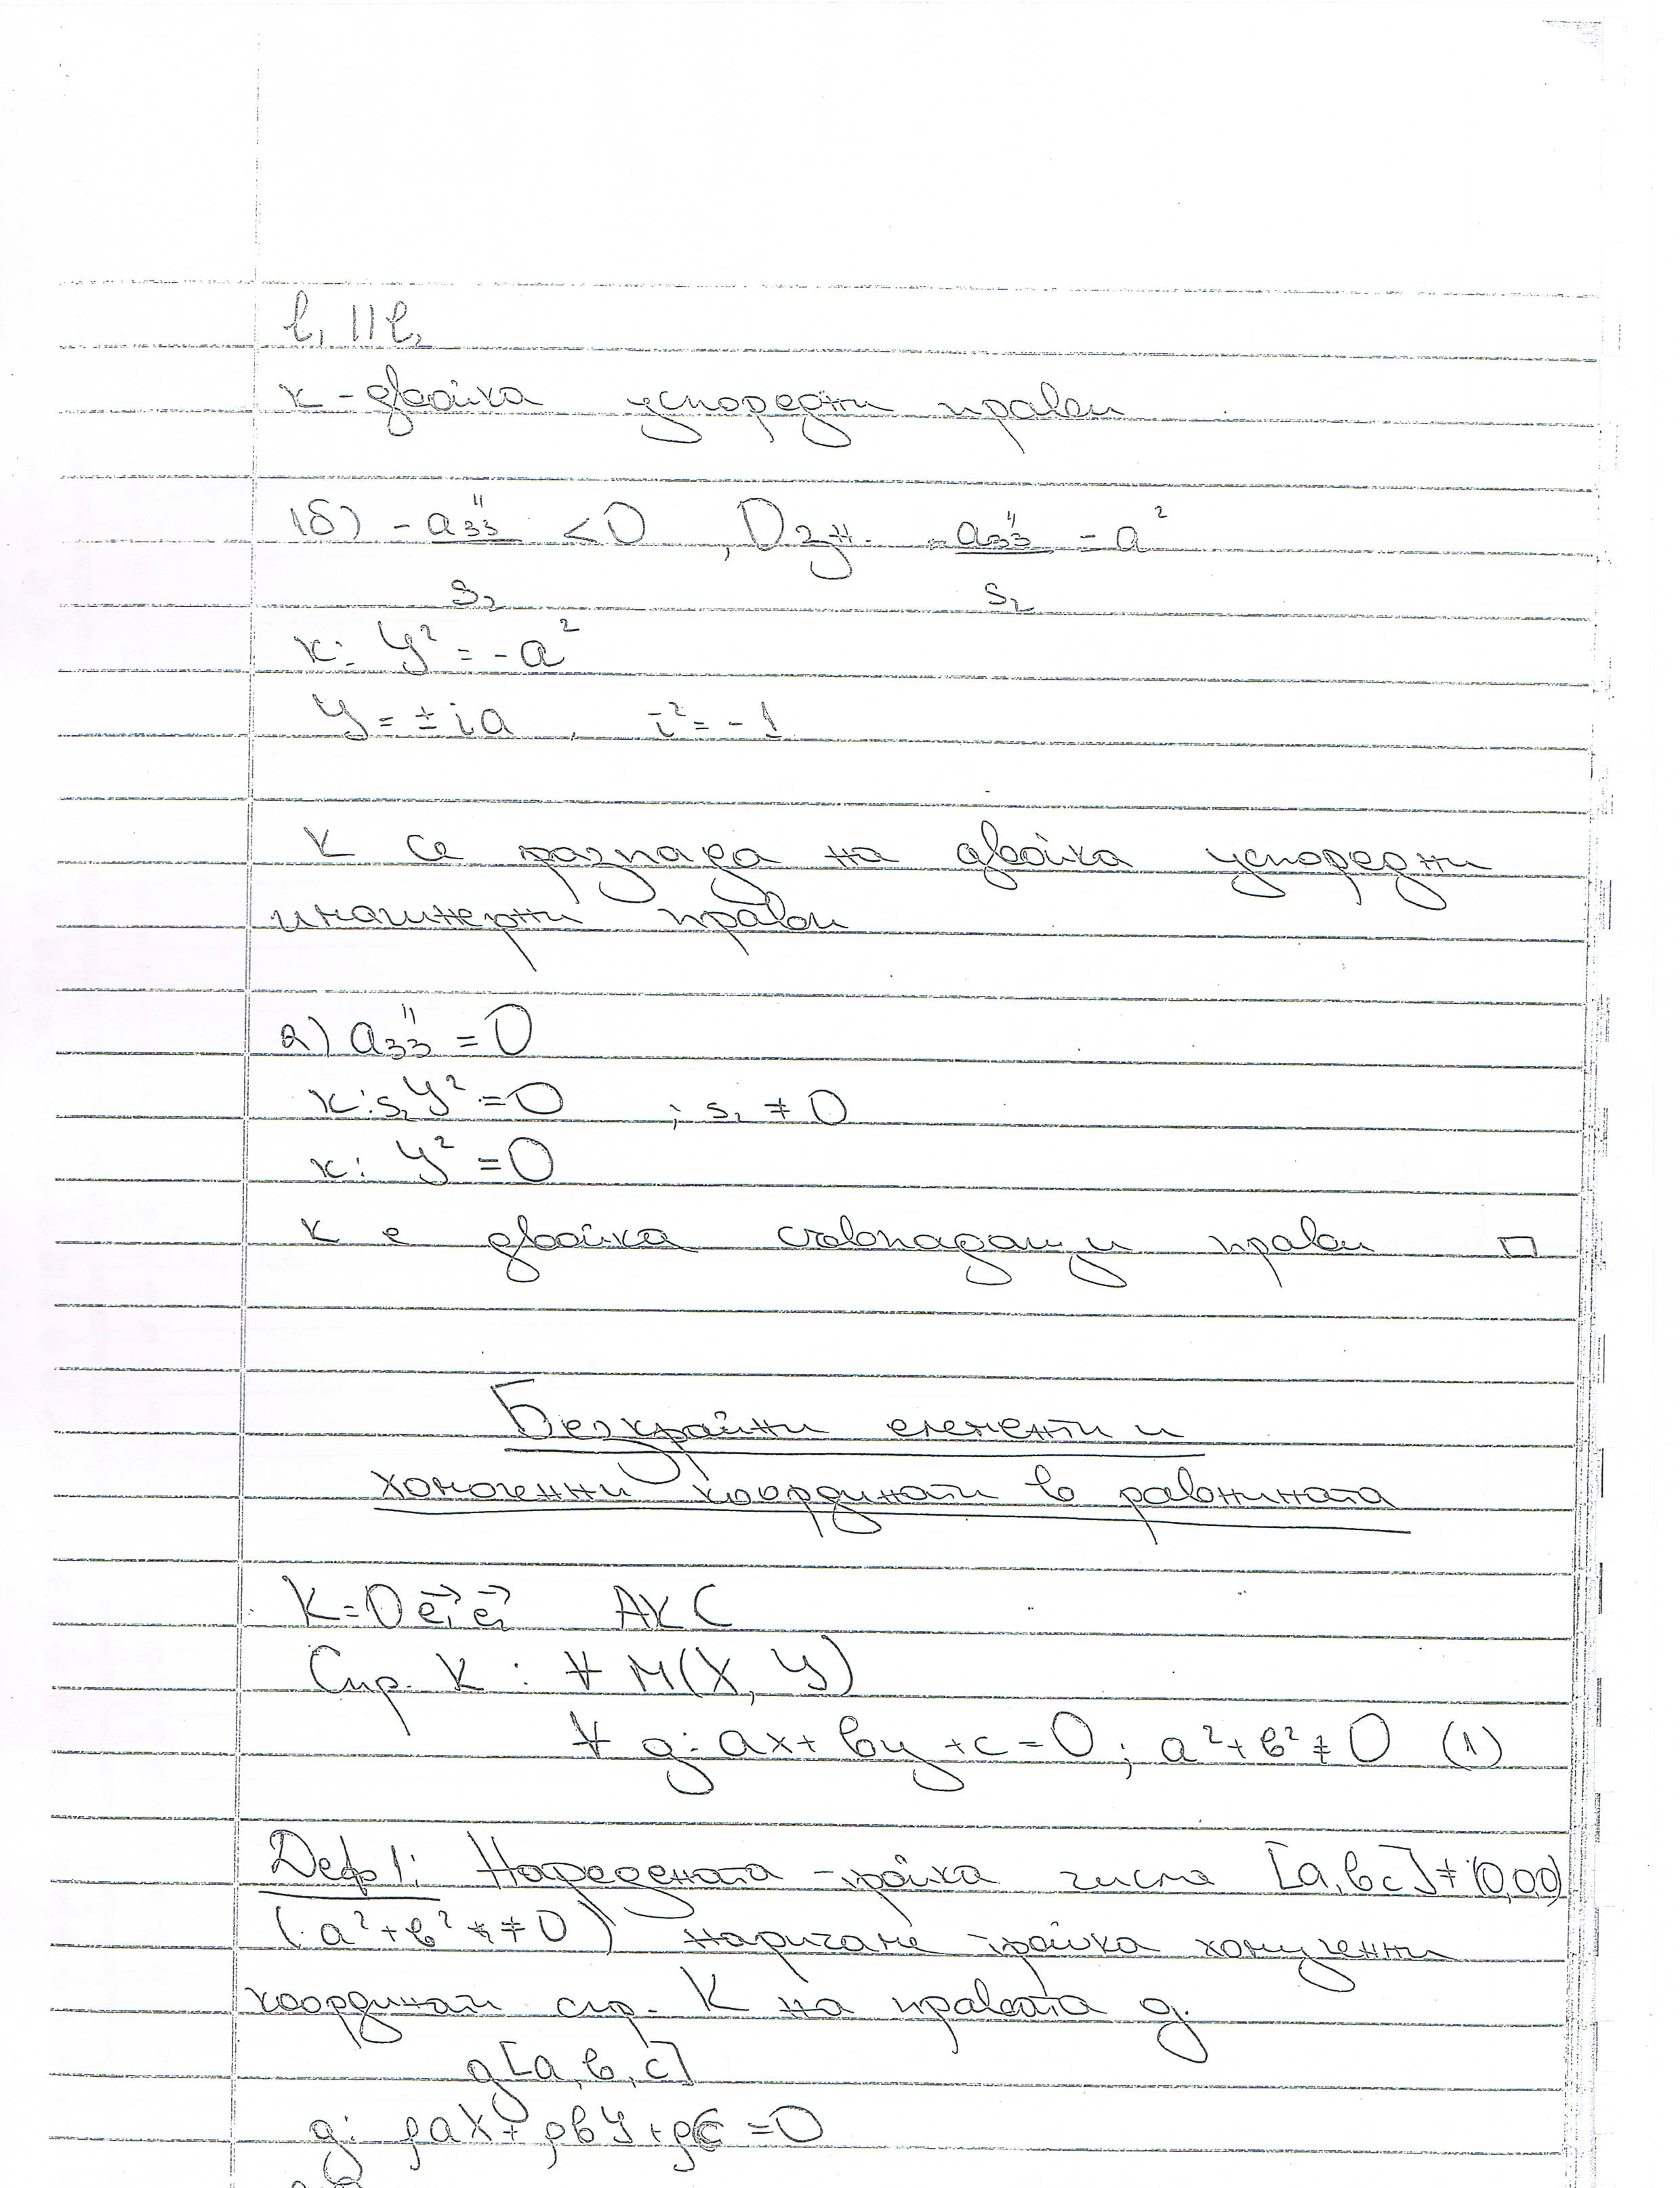 l₁ || l₂
к - двойка успоредни прави
1б) - a₃₃'' / s₂ < 0 , Озн. - a₃₃'' / s₂ = - a²
к: y² = - a²
y = ± i a , i² = -1
К се разпада на двойка успоредни
имагинерни прави
2) a₃₃'' = 0
к: s₂y² = 0 ; s₂ ≠ 0
к: y² = 0
К е двойка съвпадащи прави □
Безкрайни елементи и
хомогенни координати в равнината
K = O e₁→ e₂→ АКС
Спр. K : ∀ M(X, Y)
∀ g: ax + by + c = 0 ; a² + b² ≠ 0 (1)
Деф1: Наредената тройка числа [a, b, c] ≠ (0,0,0)
( a² + b² ≠ 0 ) наричаме тройка хомогенни
координати спр. K на правата g.
g [a, b, c]
g: ρax + ρby + ρc = 0